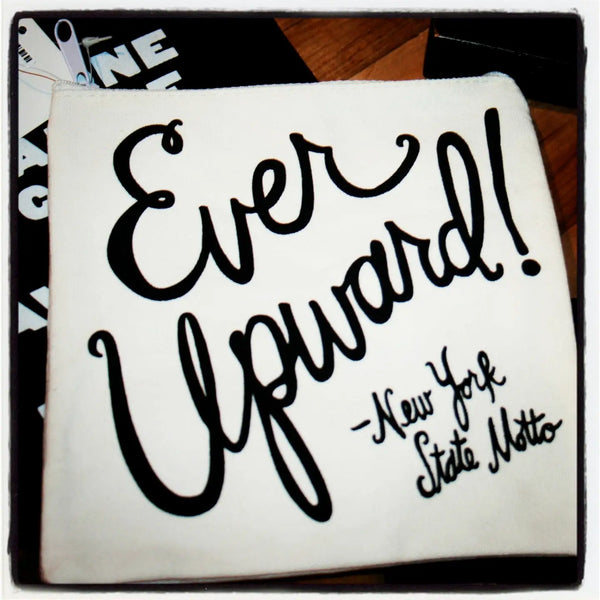 Ever
Upward!
-New York
State Motto